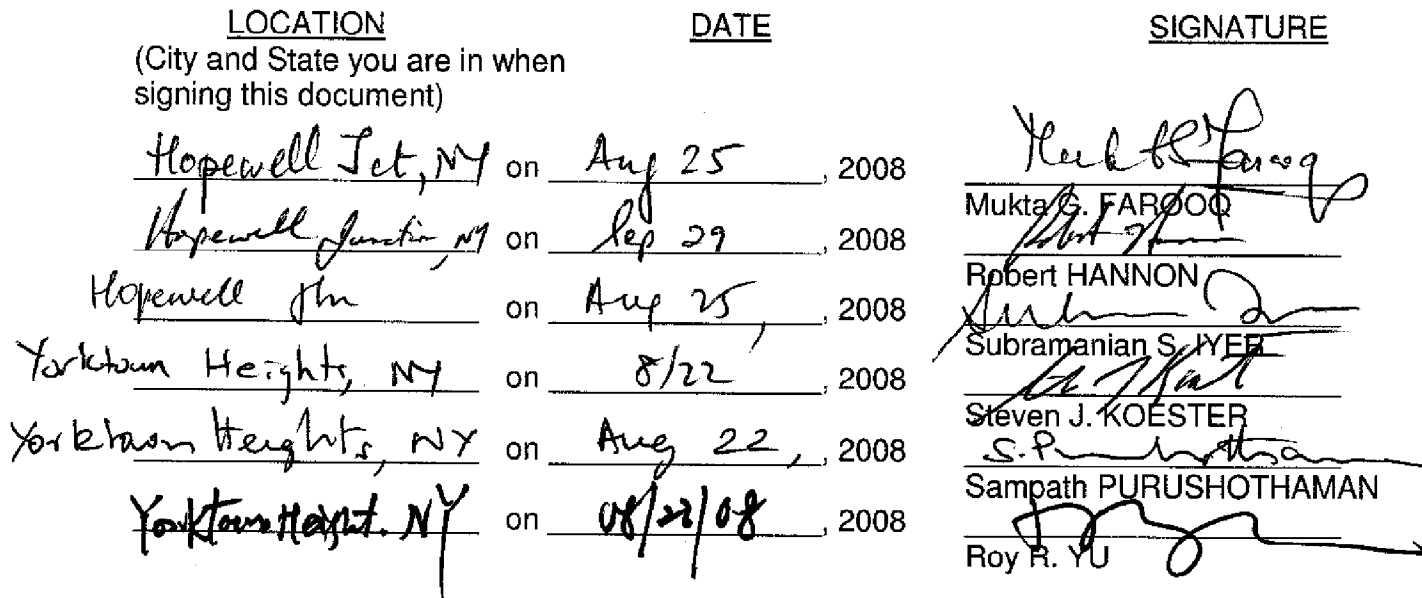 LOCATION DATE SIGNATURE
(City and State you are in when
signing this document)
Hopewell Jct, NY on Aug 25, 2008
Mukta G. FAROOQ
Hopewell Junction, NY on Sep 29, 2008
Robert HANNON
Hopewell Jn on Aug 25, , 2008
Subramanian S. IYER
Yorktown Heights, NY on 8/22, 2008
Steven J. KOESTER
Yorktown Heights, NY on Aug 22, , 2008 S. Purushothaman
Sampath PURUSHOTHAMAN
Yorktown Height. NY on 08/22/08, 2008
Roy R. YU